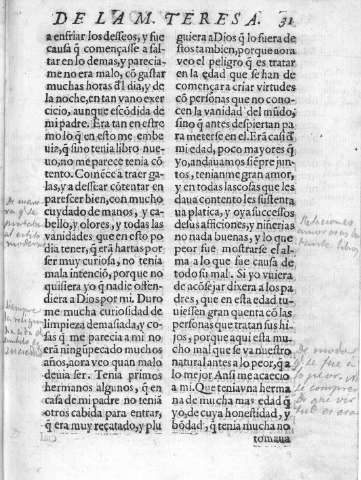 DE LA M. TERESA. 31
a enfriar los desseos, y fue
causa q̃ començasse a fal-
tar en lo demas, y parecia-
me no era malo, cõ gastar
muchas horas d̃l dia, y de
la noche, en tan vano exer
cicio, aunque escõdida de
mi padre. Era tan en estre
mo lo q̃ en esto me embe
uia, q̃ sino tenia libro nue-
uo, no me parece tenia cõ
tento. Comẽce a traer ga-
las, y a dessear cõtentar en
parescer bien, con mucho
cuydado de manos, y ca-
bello, y olores, y todas las
vanidades que en esto po
dia tener, q̃ erã hartas por
ser muy curiosa, no tenia
mala intenciõ, porque no
quisiera yo q̃ nadie ofen-
diera a Dios por mi. Duro
me mucha curiosidad de
limpieza demasiada, y co-
sas q̃ me parecia a mi no
erã ningũ pecado muchos
años, aora veo quan malo
deuia ser. Tenia primos
hermanos algunos, q̃ en
casa de mi padre no teniã
otros cabida para entrar,
q̃ era muy recatado, y plu
guiera a Dios q̃ lo fuera de
stos tambien, porque aora
veo el peligro q̃ es tratar
en la edad que se han de
començar a criar virtudes
cõ personas que no cono-
cen la vanidad del mũdo,
sino q̃ antes despiertan pa
ra meterse en el. Erã casi d̃
mi edad, poco mayores q̃
yo, andauamos siẽpre jun-
tos, tenianme gran amor,
y en todas las cosas que les
daua contento les sustenta
ua platica, y oya successos
de sus afficiones, y niñerias
no nada buenas, y lo que
peor fue mostrarse el al-
ma a lo que fue causa de
todo su mal. Si yo vuiera
de acõsejar dixera a los pa
dres, que en esta edad tu-
uiessen gran quenta cõ las
personas que tratan sus hi-
jos, porque aqui esta mu-
cho mal que se va nuestro
natural antes a lo peor, q̃ a
lo mejor. Ansi me acaecio
a mi. Que tenia vna herma
na de mucha mas edad q̃
yo, de cuya honestidad, y
bõdad, q̃ tenia mucha no
tomaua